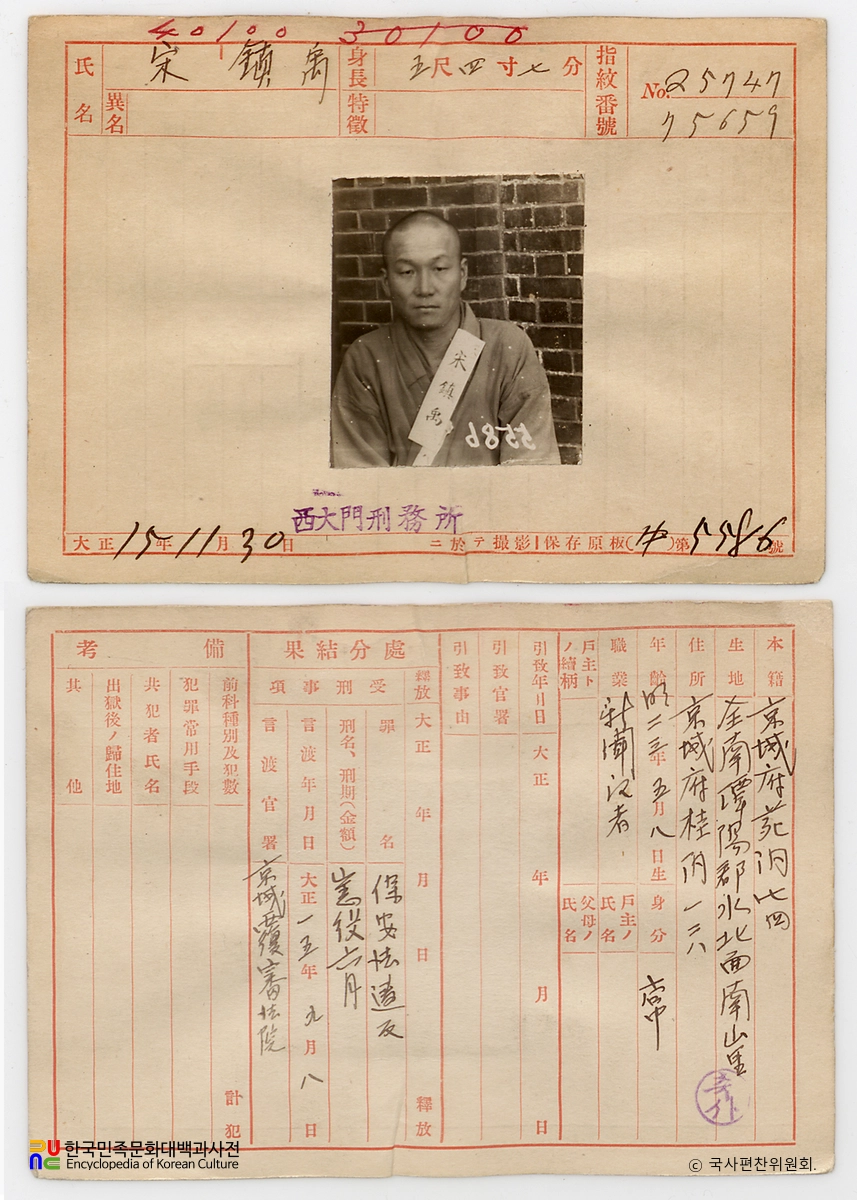 40100 30100
氏名 宋鎮禹
異名
身長 五尺四寸七分
特徵
指紋番號 No. 25747
75659
宋鎮禹
5586
西大門刑務所
大正15年11月30日ニ於テ撮影 保存原板 第5586號
本籍 京城府苑洞七四
生地 全南潭陽郡水北面南山里
住所 京城府桂洞一二八
年齡 明二三年五月八日生
身分 常
職業 新聞記者
戶主ノ氏名
戶主トノ續柄
父母ノ氏名
引致年月日 大正 年 月 日
引致官署
引致事由
處分結果
釋放 大正 年 月 日 釋放
受刑事項
罪名 保安法違反
刑名、刑期(金額) 懲役六月
言渡年月日 大正一五年九月八日
言渡官署 京城覆審法院
備考
前科種別及犯數 計 犯
犯罪常用手段
共犯者氏名
出獄後ノ歸住地
其他
한국민족문화대백과사전
Encyclopedia of Korean Culture
© 국사편찬위원회.